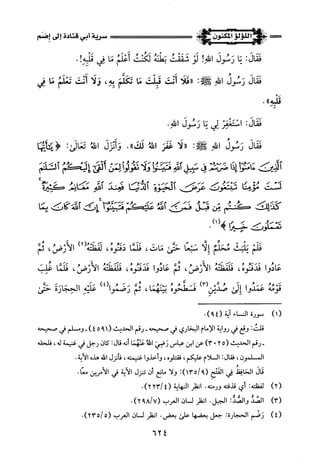 اللؤلؤ المكنون
سرية أبي قتادة إلى إضم
فَقَالَ: يَا رَسُولَ اللهِ! لَوْ شَقَقْتُ بَطْنَهُ لَكُنْتُ أَعْلَمُ مَا فِي قَلْبِهِ!.
فَقَالَ رَسُولُ اللهِ ﷺ: «فَلَا أَنْتَ قَبِلْتَ مَا تَكَلَّمَ بِهِ، وَلَا أَنْتَ تَعْلَمُ مَا فِي
قَلْبِهِ».
فَقَالَ: اسْتَغْفِرْ لِي يَا رَسُولَ اللهِ.
فَقَالَ رَسُولُ اللهِ ﷺ: «لَا غَفَرَ اللهُ لَكَ». وَأَنْزَلَ اللهُ تَعَالَى: ﴿يَٰٓأَيُّهَا
ٱلَّذِينَ ءَامَنُوٓا۟ إِذَا ضَرَبْتُمْ فِى سَبِيلِ ٱللَّهِ فَتَبَيَّنُوا۟ وَلَا تَقُولُوا۟ لِمَنْ أَلْقَىٰٓ إِلَيْكُمُ ٱلسَّلَٰمَ
لَسْتَ مُؤْمِنًا تَبْتَغُونَ عَرَضَ ٱلْحَيَوٰةِ ٱلدُّنْيَا فَعِندَ ٱللَّهِ مَغَانِمُ كَثِيرَةٌ ۚ
كَذَٰلِكَ كُنتُم مِّن قَبْلُ فَمَنَّ ٱللَّهُ عَلَيْكُمْ فَتَبَيَّنُوٓا۟ ۚ إِنَّ ٱللَّهَ كَانَ بِمَا
تَعْمَلُونَ خَبِيرًا﴾(١).
فَلَمْ يَلْبَثْ مُحَلِّمٌ إِلَّا سَبْعًا حَتَّى مَاتَ، فَلَمَّا دَفَنُوهُ، لَفَظَتْهُ(٢) الْأَرْضُ، ثُمَّ
عَادُوا فَدَفَنُوهُ، فَلَفَظَتْهُ الْأَرْضُ، ثُمَّ عَادُوا فَدَفَنُوهُ، فَلَفَظَتْهُ الْأَرْضُ، فَلَمَّا غُلِبَ
قَوْمُهُ عَمَدُوا إِلَى صُدَّيْنِ(٣) فَسَطَحُوهُ بَيْنَهُمَا، ثُمَّ رَضَمُوا(٤) عَلَيْهِ الْحِجَارَةَ حَتَّى
(١) سورة النساء آية (٩٤).
قلتُ: وقع في رواية الإمام البخاري في صحيحه - رقم الحديث (٤٥٩١) - ومسلم في صحيحه
- رقم الحديث (٣٠٢٥) عن ابن عباس رَضِيَ اللهُ عَنْهُمَا أنه قال: كان رجل في غنيمة له، فلحقه
المسلمون، فقال: السلام عليكم، فقتلوه، وأخذوا غنيمته، فأنزل الله هذه الآية.
قال الحَافِظُ في الفَتْحِ (١٣٥/٩): ولا مانع أن تنزل الآية في الأمرين معًا.
(٢) لفظته: أي قذفته ورمته. انظر النهاية (٢٢٣/٤).
(٣) الصَّدُّ والصُّدُّ: الجبل. انظر لسان العرب (٢٩٨/٧).
(٤) رَضَم الحجارة: جعل بعضها على بعض. انظر لسان العرب (٢٣٥/٥).
٦٢٤